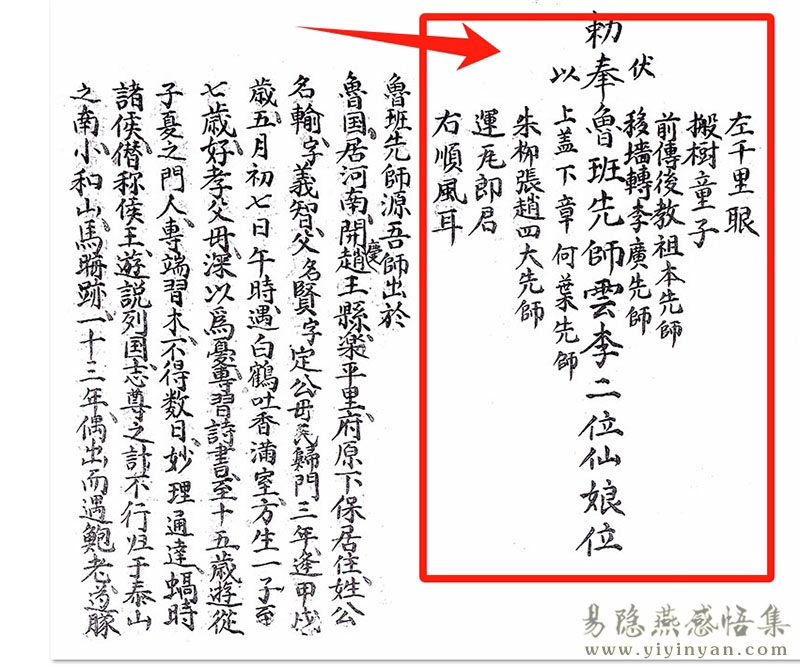 左千里眼
搬樹童子
前傳後教祖本先師
移墙轉李廣先師
伏
勅奉魯班先師雲李二位仙娘位
以
上盖下章何葉先師
朱柳張趙四大先師
運瓦郎君
右順風耳
魯班先師源吾師出於
魯国居河南開趙慶王縣樂平里府原下保居住姓公
名輸字義智父名賢字定公毋氏歸門三年逢甲戌
歳五月初七日午時遇白鶴吐香滿室方生一子至
七歳好孝父毋深以爲憂專習詩書至十五歳遊從
子夏之門人專端習木不得数日妙理通達蝸時
諸侯僭称侯王遊説列国志尊之計不行归于泰山
之南小和山馬跡一十三年偶出而遇鮑老
易隐燕感悟集
www.yiyinyan.com